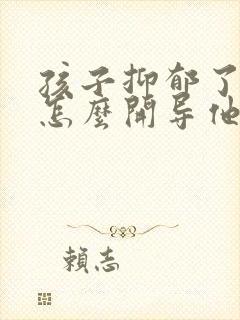 孩子抑郁了
怎麼開导他
賴志